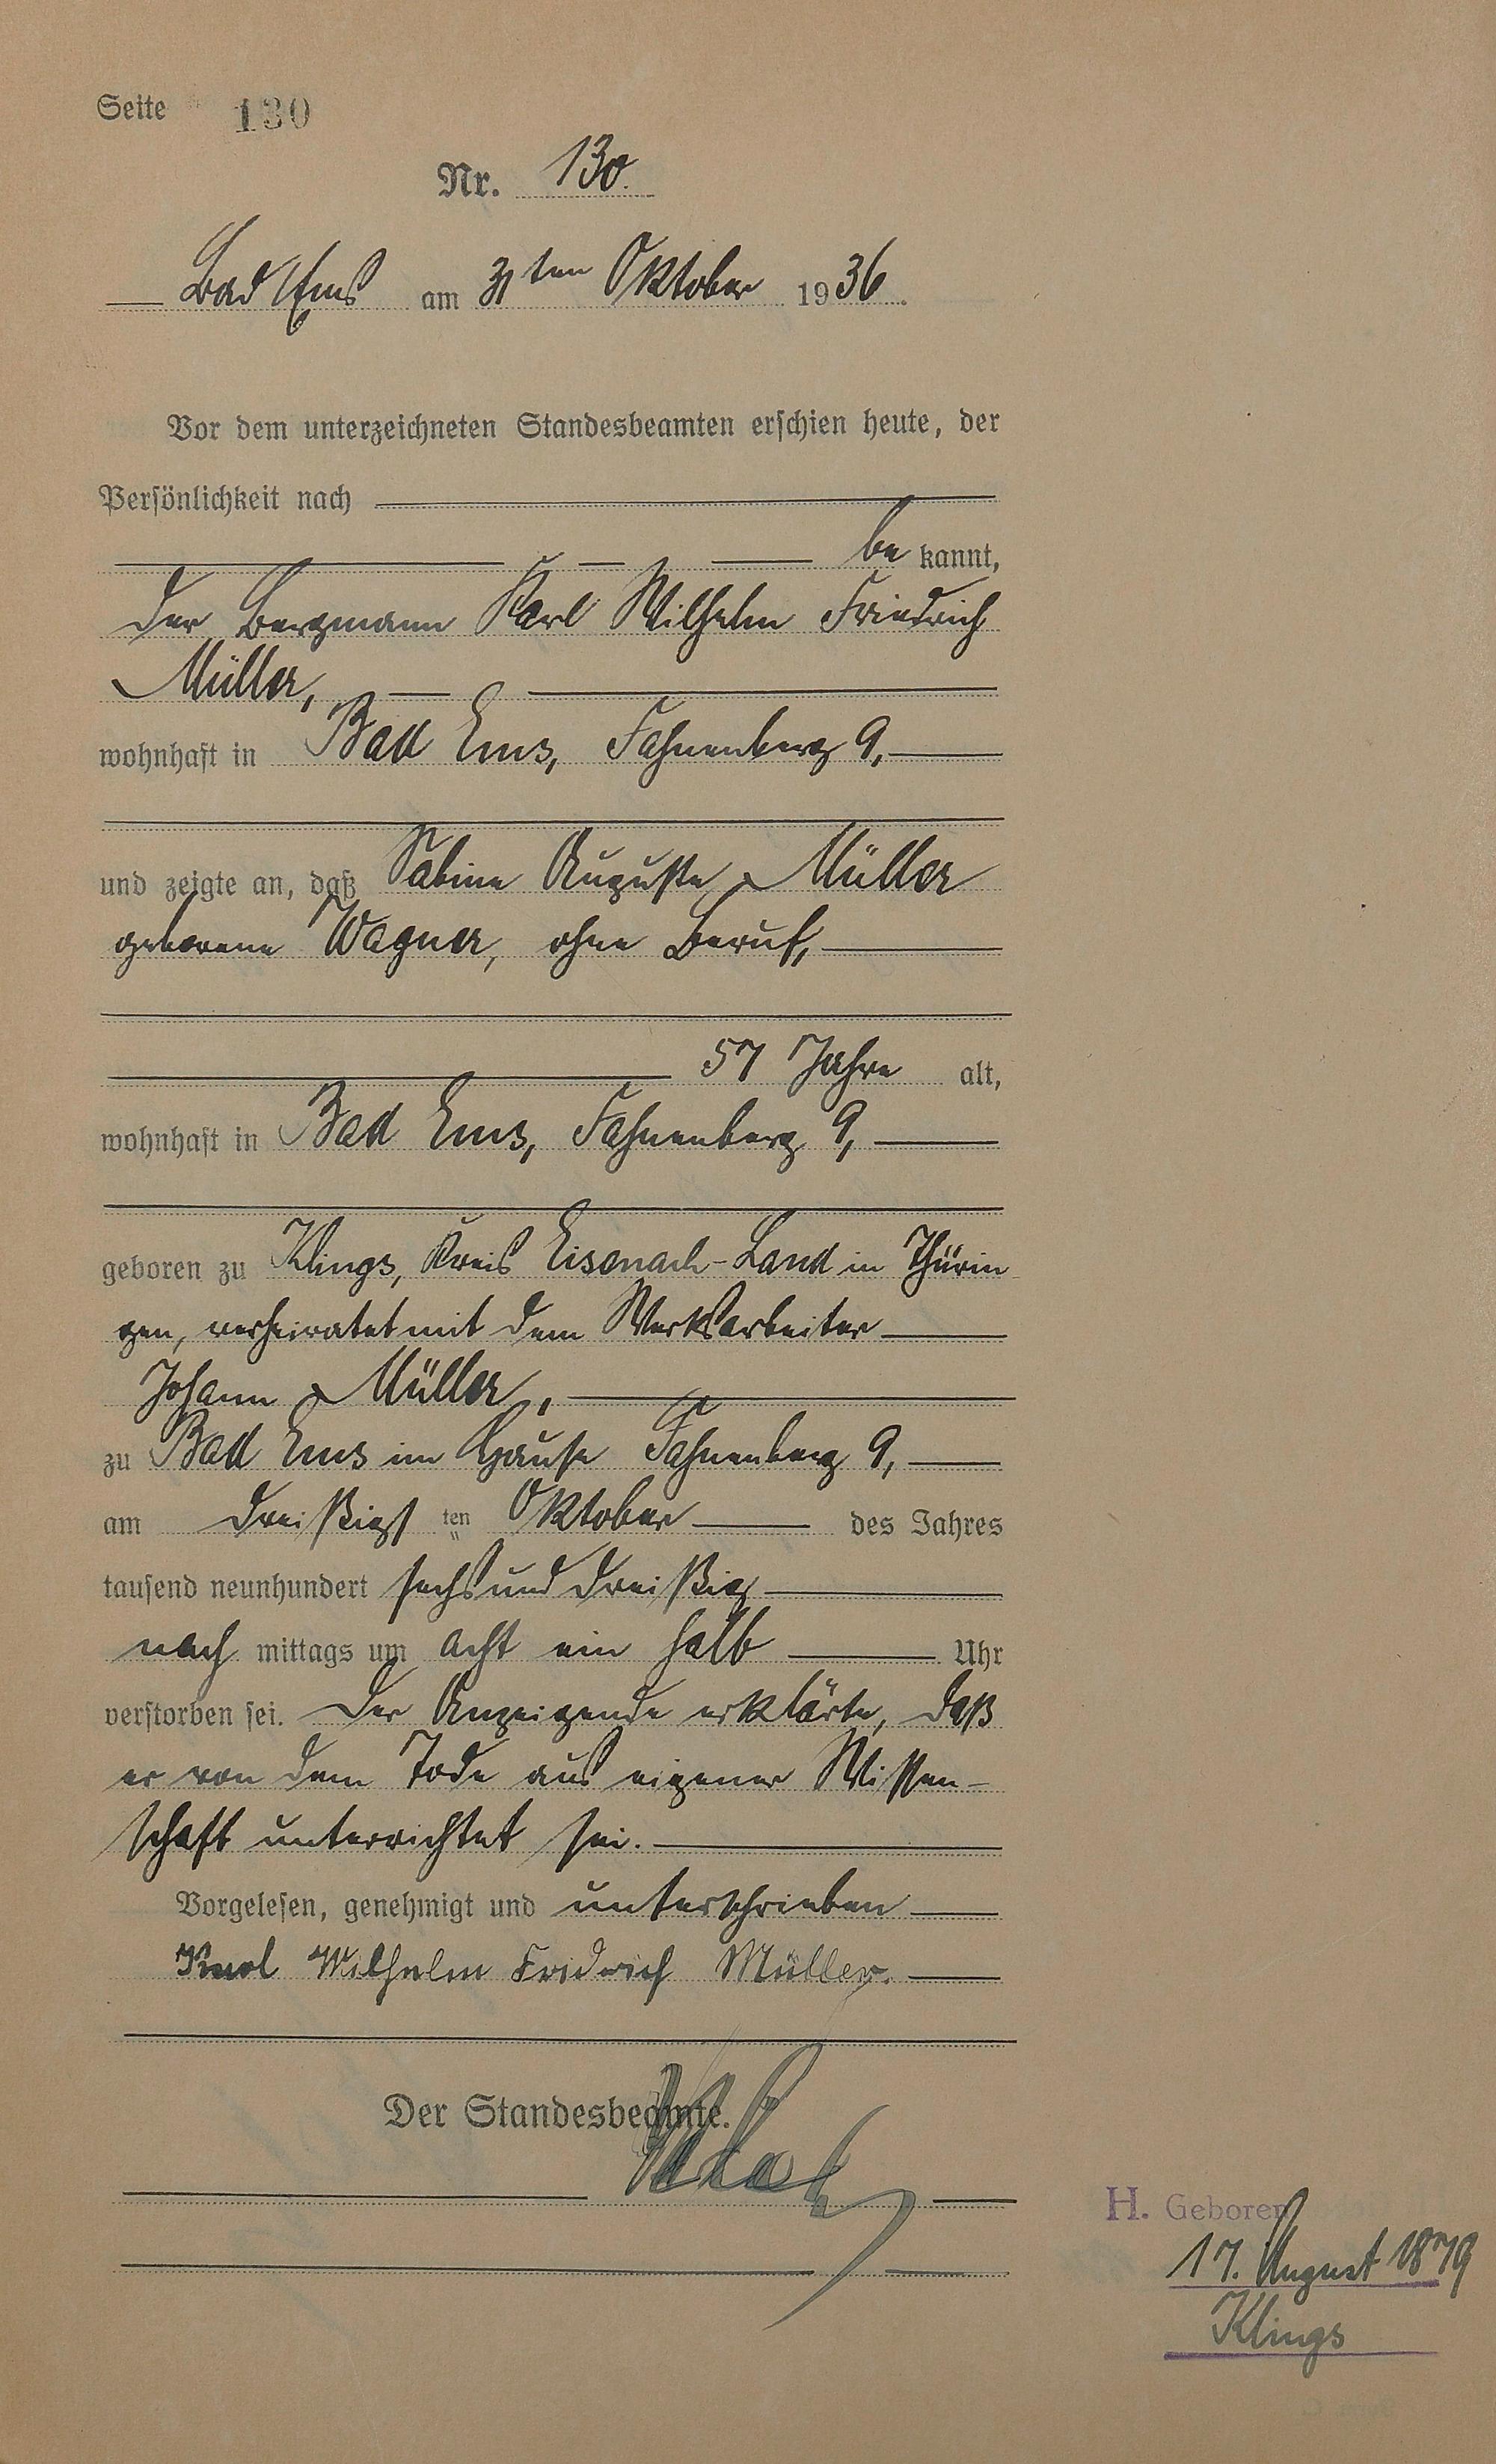 Seite 130
Nr. 130.
Bad Ems am 31ten Oktober 1936.
Vor dem unterzeichneten Standesbeamten erschien heute, der
Persönlichkeit nach
be kannt,
der Bergmann Karl Wilhelm Friedrich
Müller,
wohnhaft in Bad Ems, Fahnenberg 9,
und zeigte an, daß Sabine Auguste Müller
geborene Wagner, ohne Beruf,
57 Jahre alt,
wohnhaft in Bad Ems, Fahnenberg 9,
geboren zu Klings, Kreis Eisenach-Land in Thürin
gen, verheiratet mit dem Werksarbeiter
Johann Müller,
zu Bad Ems im Hause Fahnenberg 9,
am dreißigsten Oktober des Jahres
tausend neunhundert sechs und dreißig
nach mittags um acht ein halb Uhr
verstorben sei. Der Anzeigende erklärte, daß
er von dem Tode aus eigener Wissen-
schaft unterrichtet sei.
Vorgelesen, genehmigt und unterschrieben
Karl Wilhelm Fridrich Müller.
Der Standesbeamte.
H. Geboren
17. August 1879
Klings